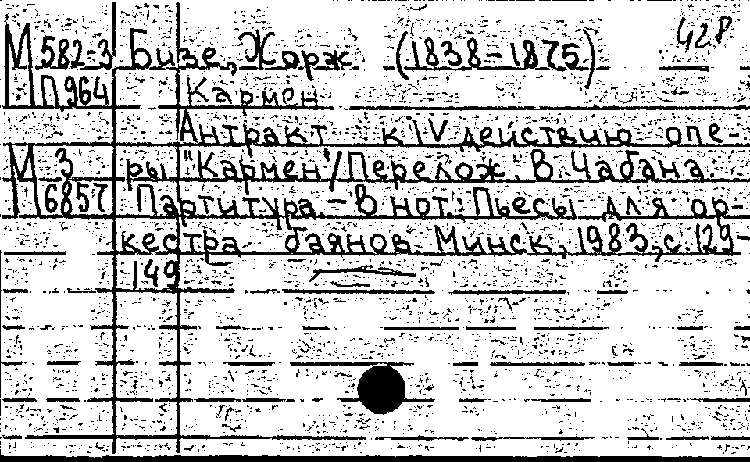 428
М 582-3 Бизе, Жорж (1838-1875)
П 964 Кармен
Антракт к IV действию опе-
М 3 ры "Кармен"/Перелож. В. Чабана.
П 6857 Партитура. - В нот.: Пьесы для ор-
кестра баянов. Минск, 1983, с. 129-
149